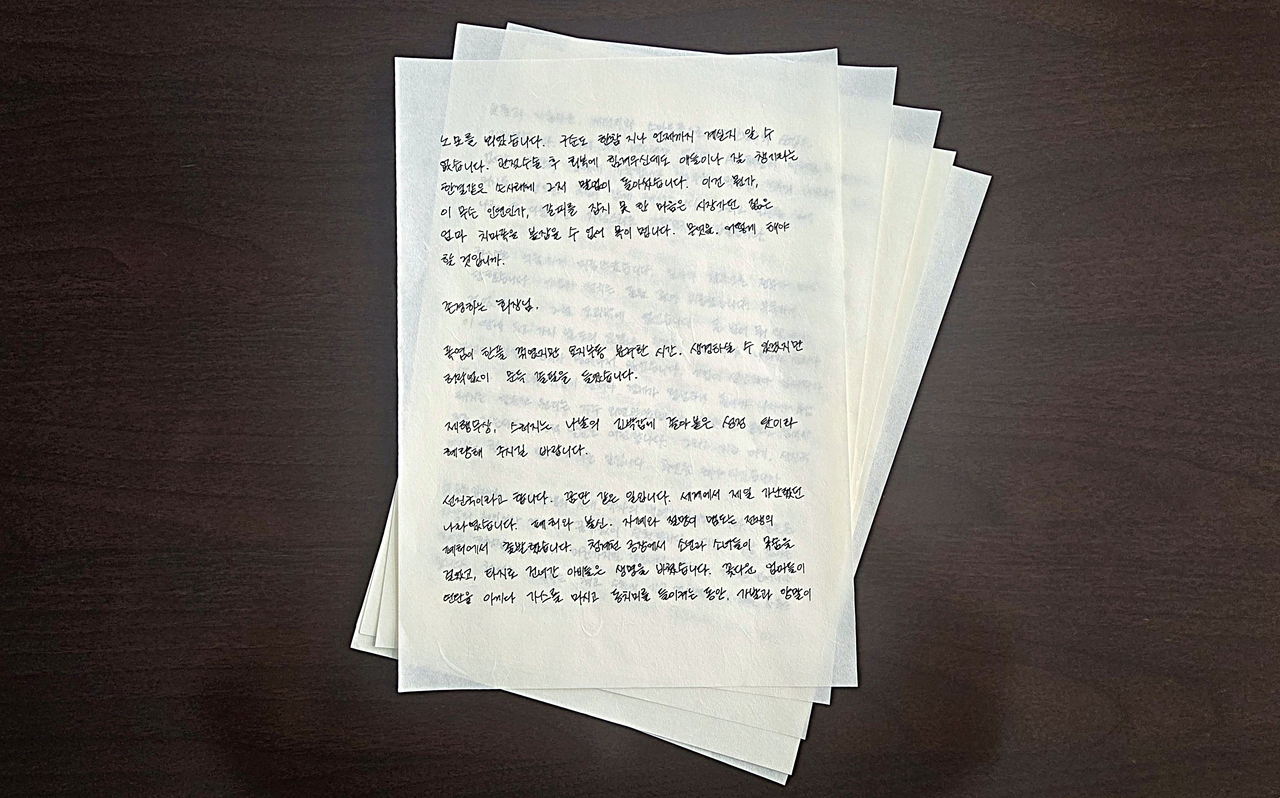 노모를 뵈었습니다. 구순도 한참 지나 언제까지 계실지 알 수
없습니다. 관절수술 후 회복에 힘겨우신데도 애들이나 잘 챙기라는
한결같은 손사래에 그저 말없이 돌아섰습니다. 이건 뭔가,
이 무슨 인연인가, 갈피를 잡지 못 한 마음은 시장가던 젊은
엄마 치마폭을 붙잡을 수 없어 목이 멥니다. 무엇을. 어떻게 해야
할 것입니까.
존경하는 회장님.
폭염이 한풀 꺾였지만 요지부동 분주한 시간. 생경하실 수 있겠지만
허락없이 문득 글월을 올렸습니다.
제행무상, 스러지는 나날의 긴박감에 돌아본 심정 탓이라
혜량해 주시길 바랍니다.
선진국이라고 합니다. 꿈만 같은 일입니다. 세계에서 제일 가난했던
나라였습니다. 폐허와 불신. 자폐와 절망이 맴도는 전쟁의
폐허에서 출발했습니다. 청계천 공장에서 소년과 소녀들이 죽음을
걸었고, 타지로 건너간 아비들은 생명을 바쳤습니다. 꽃다운 엄마들이
연탄을 아끼다 가스를 마시고 동치미를 들이켜는 동안, 가발과 양말이